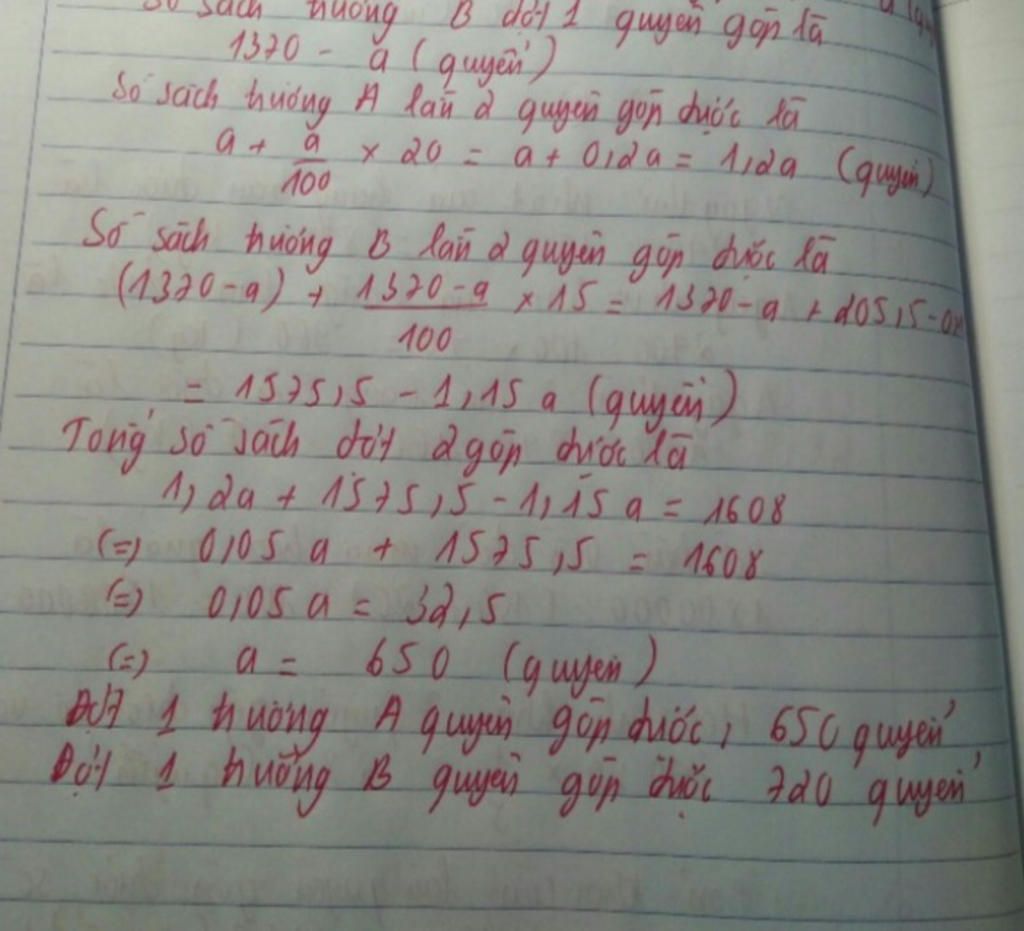 Số sách trường B đợt 1 quyên góp là
1370 - a (quyển)
Số sách trường A lần 2 quyên góp được là
a + a/100 × 20 = a + 0,2a = 1,2a (quyển)
Số sách trường B lần 2 quyên góp được là
(1370-a) + 1370-a/100 × 15 = 1370-a + 205,5-
= 1575,5 - 1,15 a (quyển)
Tổng số sách đợt 2 góp được là
1,2a + 1575,5 - 1,15 a = 1608
(=) 0,05 a + 1575,5 = 1608
(=) 0,05 a = 32,5
(=) a = 650 (quyển)
Đợt 1 trường A quyên góp được, 650 quyển
Đợt 1 trường B quyên góp được 720 quyển